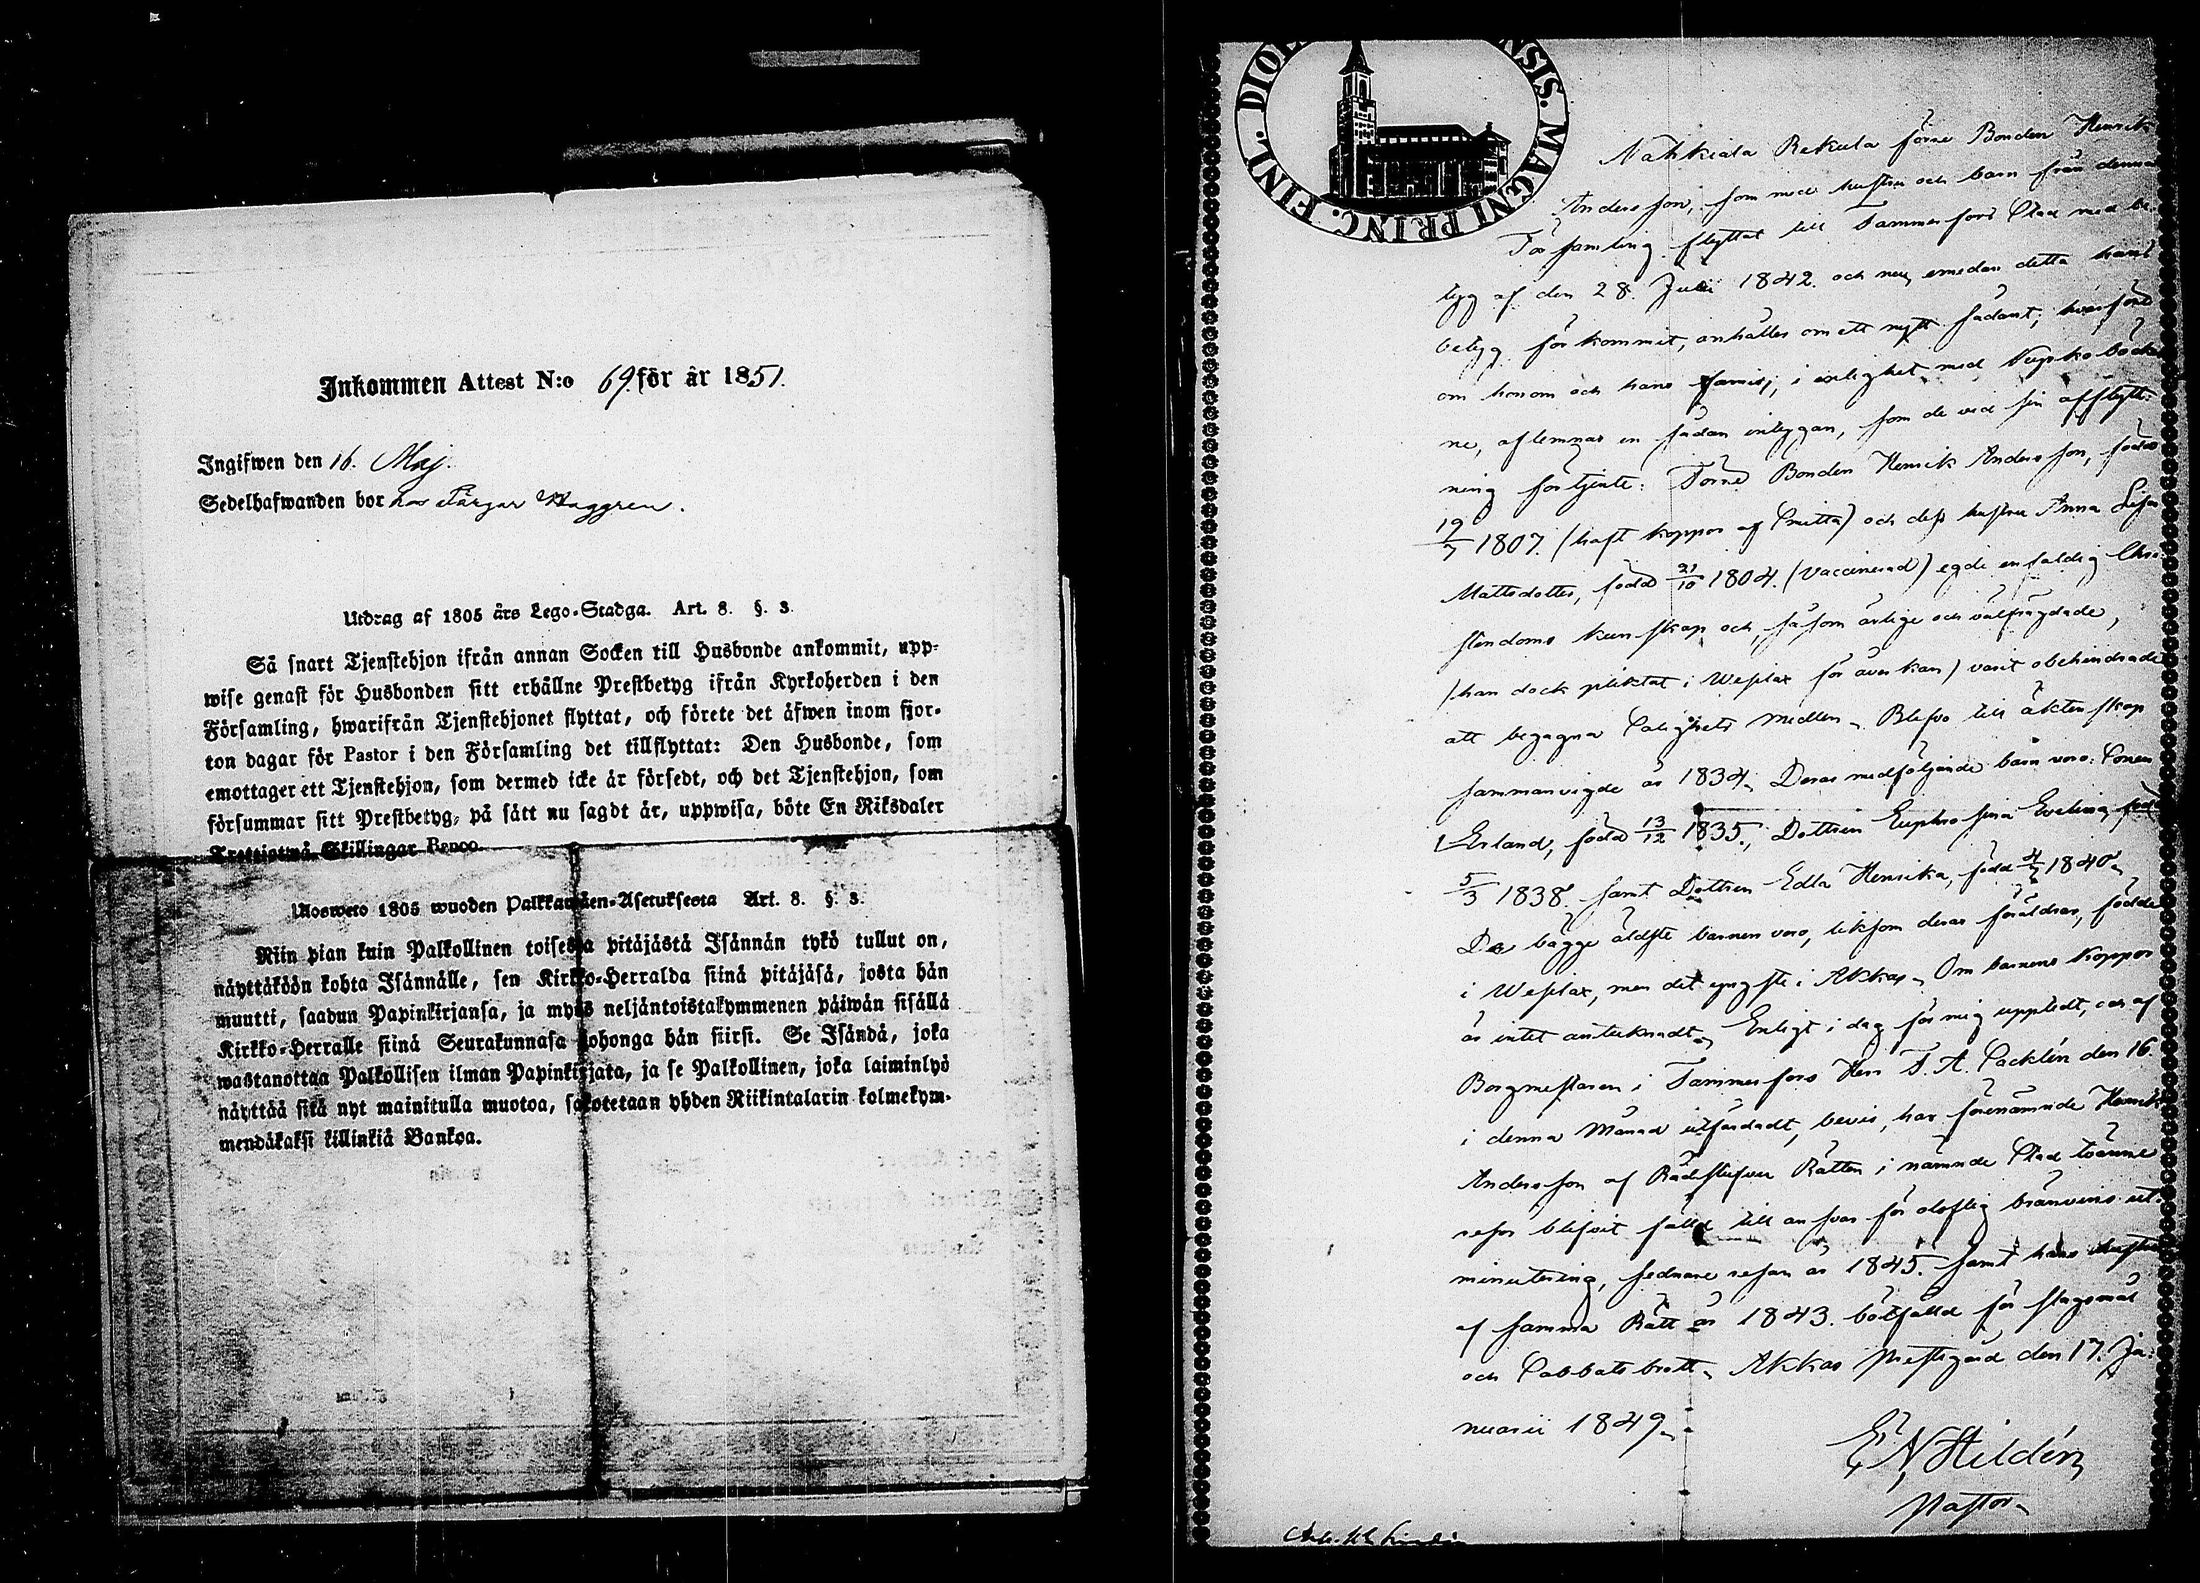 Inkommen Attest N:o 69. för år 1851.
Ingifwen den 16. Maj.
Sedelhafwanden bor hos Färgar Waggren.
Utdrag af 1805 års Lego-Stadga. Art. 8. §. 3.
Så snart Tjenstehjon ifrån annan Socken till Husbonde ankommit, upp-
wise genast för Husbonden sitt erhållne Prestbetyg ifrån Kyrkoherden i den
Församling, hwarifrån Tjenstehjonet flyttat, och förete det äfwen inom fjor-
ton dagar för Pastor i den Församling det tillflyttat: Den Husbonde, som
emottager ett Tjenstehjon, som dermed icke är försedt, och det Tjenstehjon, som
försummar sitt Prestbetyg, på sätt nu sagdt är, uppwisa, böte En Riksdaler
Trettiotwå Skillingar Banco.
Ulosweto 1805 wuoden Palkkawäen-Asetuksesta Art. 8. §. 3.
Niin pian kuin Palkollinen toisesta pitäjästä Isännän tykö tullut on,
näyttäköön kohta Isännälle, sen Kirkko-Herralda siinä pitäjäsä, josta hän
muutti, saadun Papinkirjansa, ja myös neljäntoistakymmenen päiwän sisällä
Kirkko-Herralle siinä Seurakunnasa kohonga hän siirsi. Se Isändä, joka
wastanottaa Palkollisen ilman Papinkirjata, ja se Palkollinen, joka laiminlyö
näyttää sitä nyt mainitulla muotoa, sakotetaan yhden Riikintalarin kolmekym-
mendäkaksi killinkiä Bankoa.
FINL. DIOE NSIS. MAGNI PRINC.
Nahkiala Rekula förre Bonden Henrik
Andersson, som med hustru och barn från denna
Församling flyttat till Tammerfors Stad med be-
tyg af den 28. Juli 1842. och nu, emedan detta hans
betyg förkommit, anhåller om ett nytt sådant; hvarföre
om honom och hans familj, i enlighet med Kyrkoböcker-
ne, aflemnas en sådan intygan, som de vid sin afflytt-
ning förtjente: Förre Bonden Henrik Andersson, född
19/7 1807. (haft koppor af Smitta) och dess hustru Anna Lisa
Mattsdotter, född 21/10 1804. (vaccinerad) egde enfaldig Chri-
stendoms kunskap och, såsom ärlige och välfrägdade,
(han dock pliktat i Wesilax för åverkan) varit obehindrade
att begagna Salighets medlen. Blefvo till äktenskap
sammanvigde år 1834. Deras medföljande barn voro: Sonen
Erland, född 13/12 1835., Dottren Euphrosina Evelina, född
5/3 1838. samt Dottren Edla Henrika, född 4/7 1840.
De bägge äldste barnen voro, liksom deras föräldrar, födde
i Wesilax, men det yngste i Akkas. Om barnens koppor
är intet antecknadt. Enligt i dag för mig uppledt, och af
Borgmestaren i Tammerfors Herr F. A. Packlén den 16.
i denna Månad utfärdadt, bevis, har förenämnde Henrik
Andersson af Rådstufvu Rätten i nämnde Stad tvänne
resor blifvit fälld till ansvar för oloflig bränvins ut-
minutering, sednare resan år 1845. samt hans hustru
af samma Rätt år 1843. bötfälld för slagsmål
och Sabbatsbrott. Akkas Prestgård den 17. Ja-
nuarii 1849.
E N Hildén
Pastor